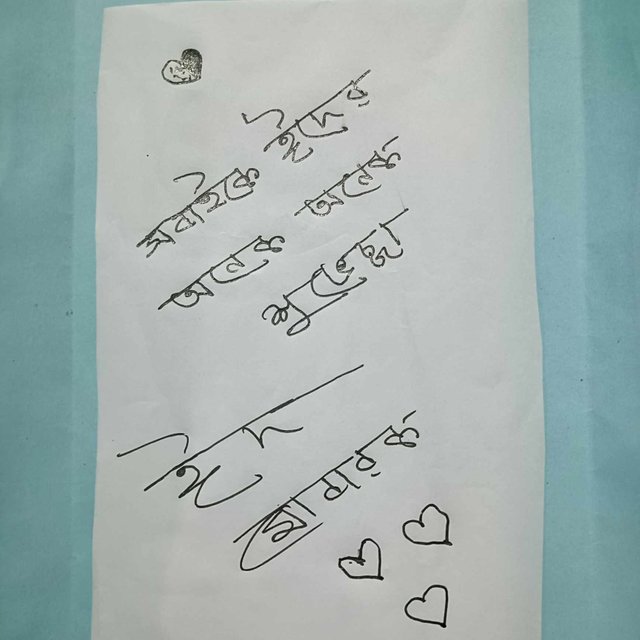 সবাইকে ঈদের
অনেক অনেক
শুভেচ্ছা
ঈদ
মোবারক